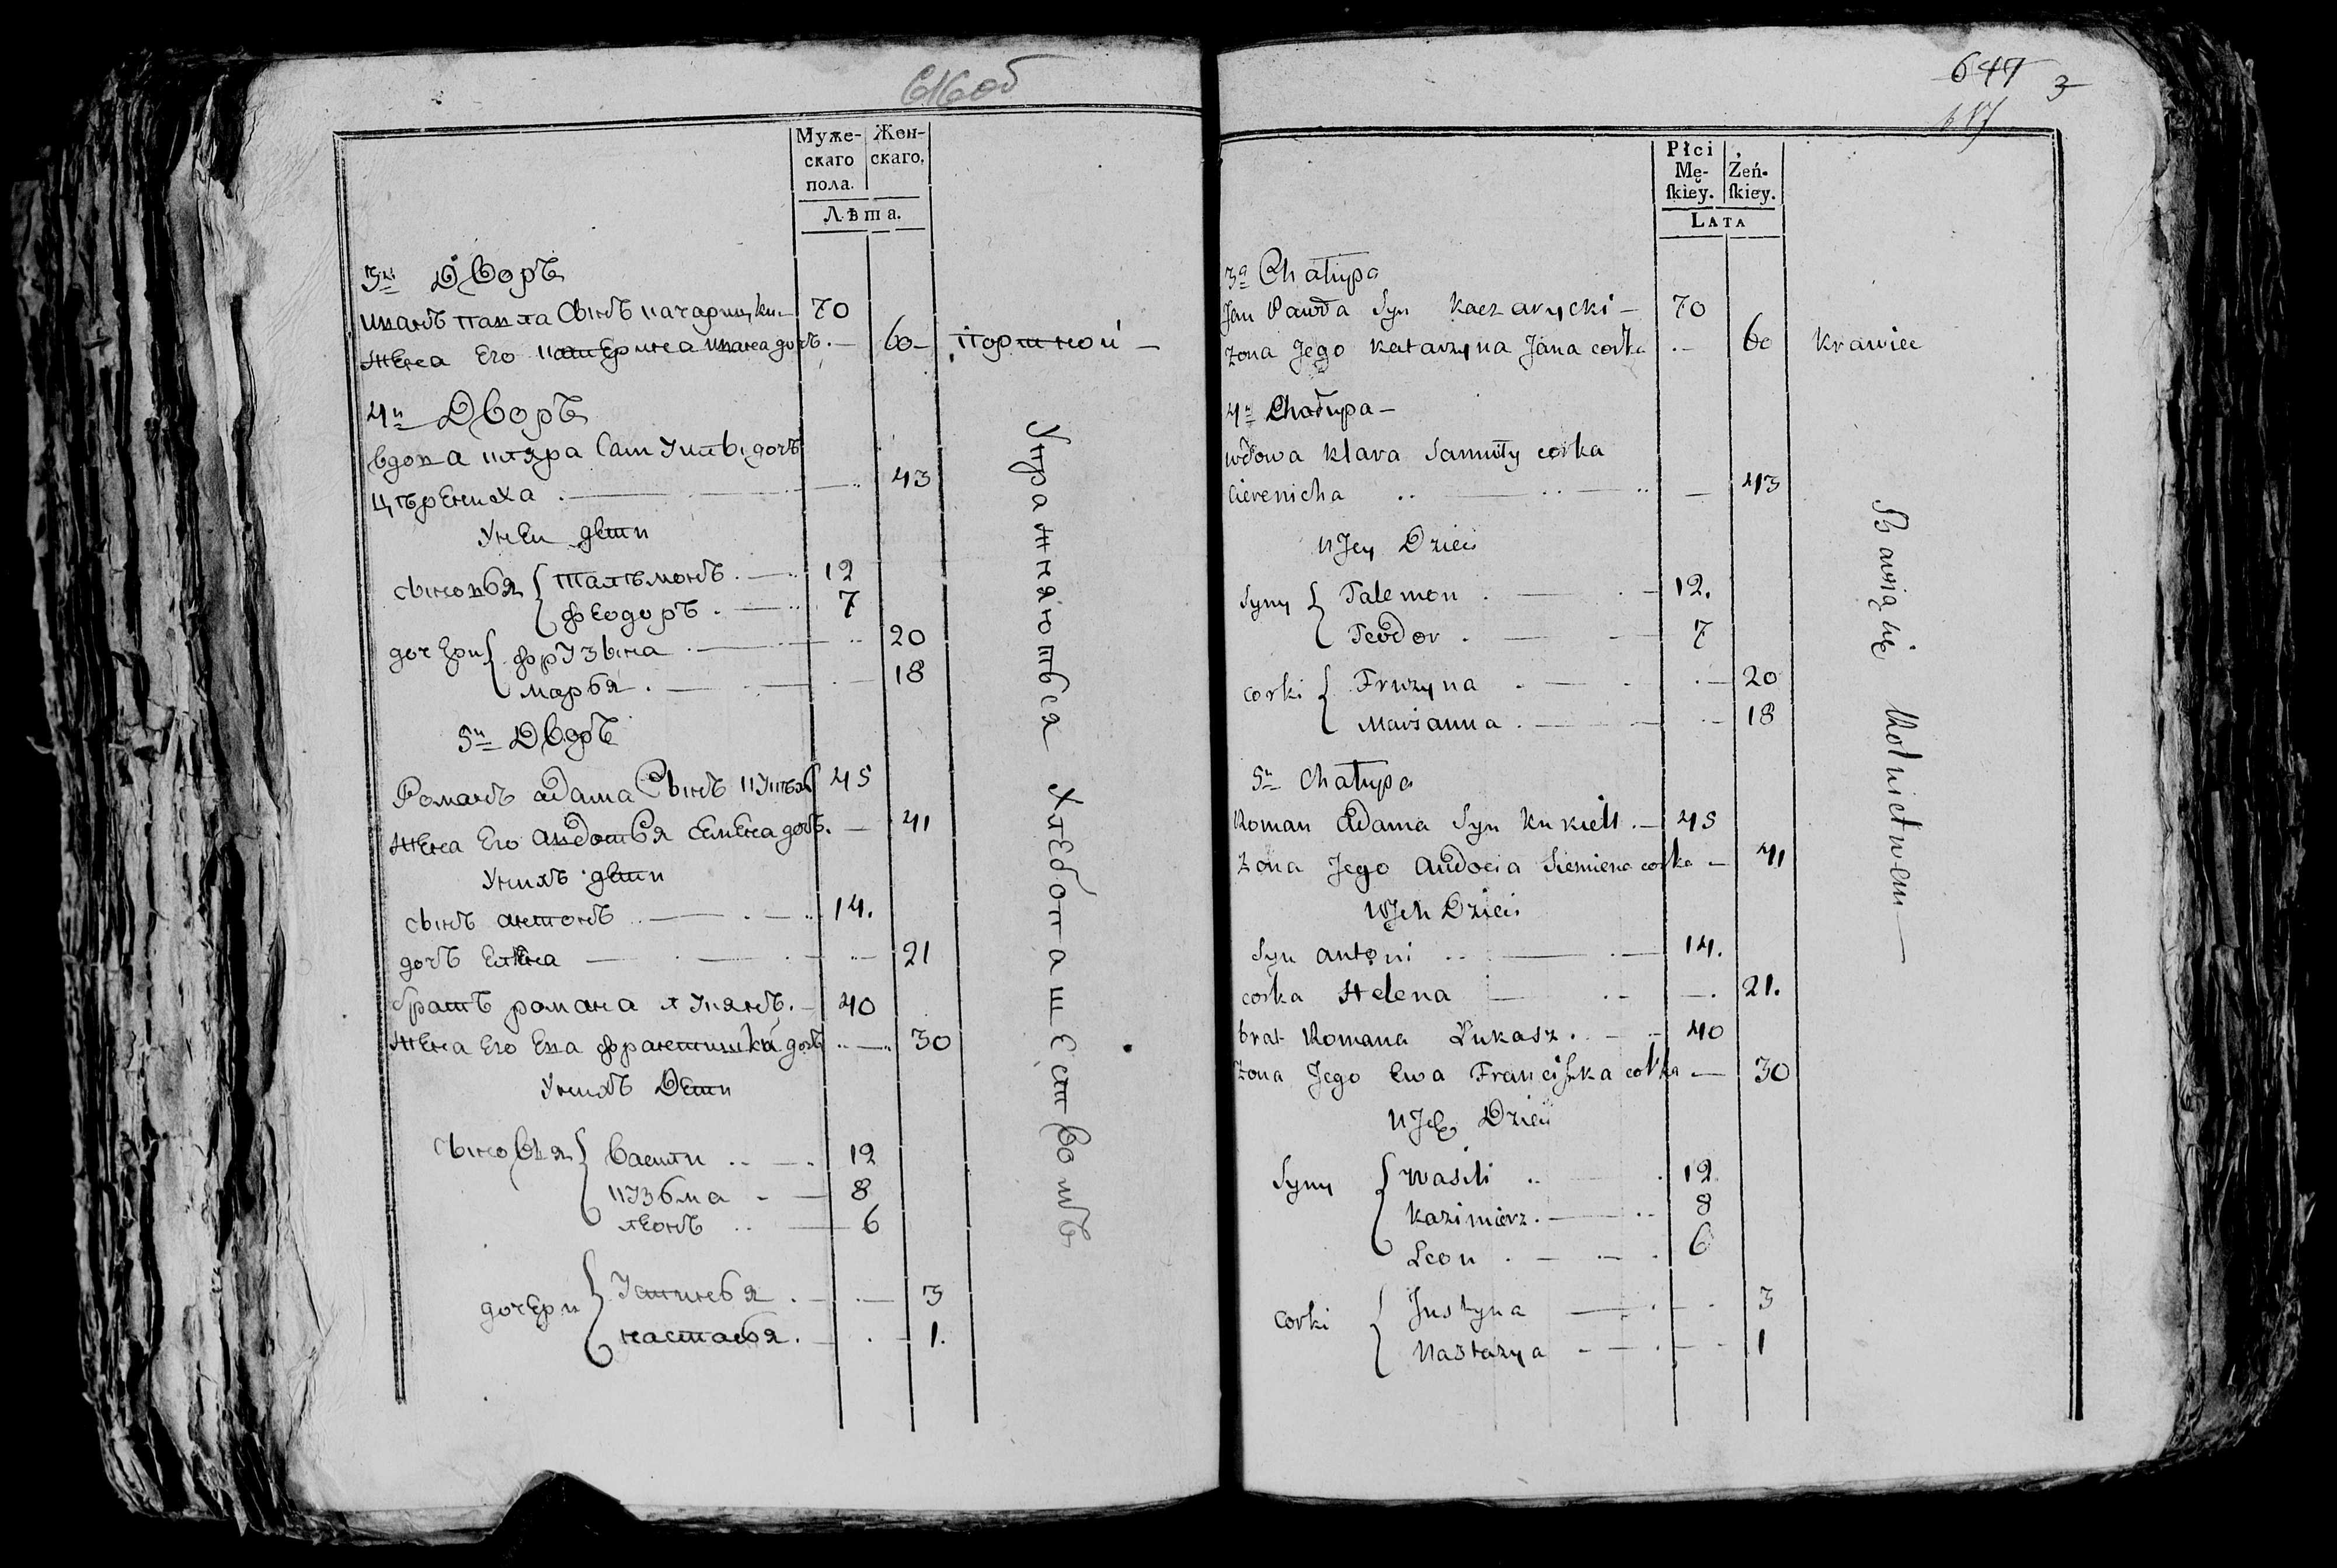 616об
Муже-
скаго
пола.
Жен-
скаго.
Лѣта.
3й Дворъ
Иванъ Павла Сынъ Качарицки 70
Жена Его Катерина Ивана дочь 60 Портной
4й Дворъ
Вдова Кляра Самуилы дочь
Цѣрениха 43
У ней дети
сыновья Талѣмонъ 12
Феодоръ 7
дочери Фрузына 20
Марья 18
5й Дворъ
Романъ Адама Сынъ 45
Жена Его Авдотья Семена дочь 41
У нихъ дети
сынъ Антонъ 14.
дочь Елена 21
братъ романа Лукянъ 40
Жена Его Ева Франтишка дочь 30
У нихъ Дети
Сыновья Васили 12
Кузьма 8
Леонъ 6
дочери Устинья 3
Настасья 1.
Упражняються хлебопашествомъ
647 3
Płci
Mę-
ſkiey.
Żeń-
ſkiey.
LATA
3a Chałupa
Jan Pawła Syn Kaczarycki 70
żona Jego Katarzyna Jana corka 60 Krawiec
4a Chałupa
wdowa Klara Samuiły corka
Cierenicha 43
u Jey Dzieci
Syny Talemon 12.
Teodor 7
corki Fruzyna 20
Marianna 18
5a Chałupa
Roman Adama Syn Kukiell 45
żona Jego Audocia Siemiena corka 41
u Jch Dzieci
Syn antoni 14.
corka Helena 21.
brat Romana Łukasz 40
żona Jego Ewa Franciſzka corka 30
u Jch Dzieci
Syny Wasili 12
Kazimierz 8
Leon 6
Corki Justyna 3
Nastazya 1
Bawią się Rolnictwem